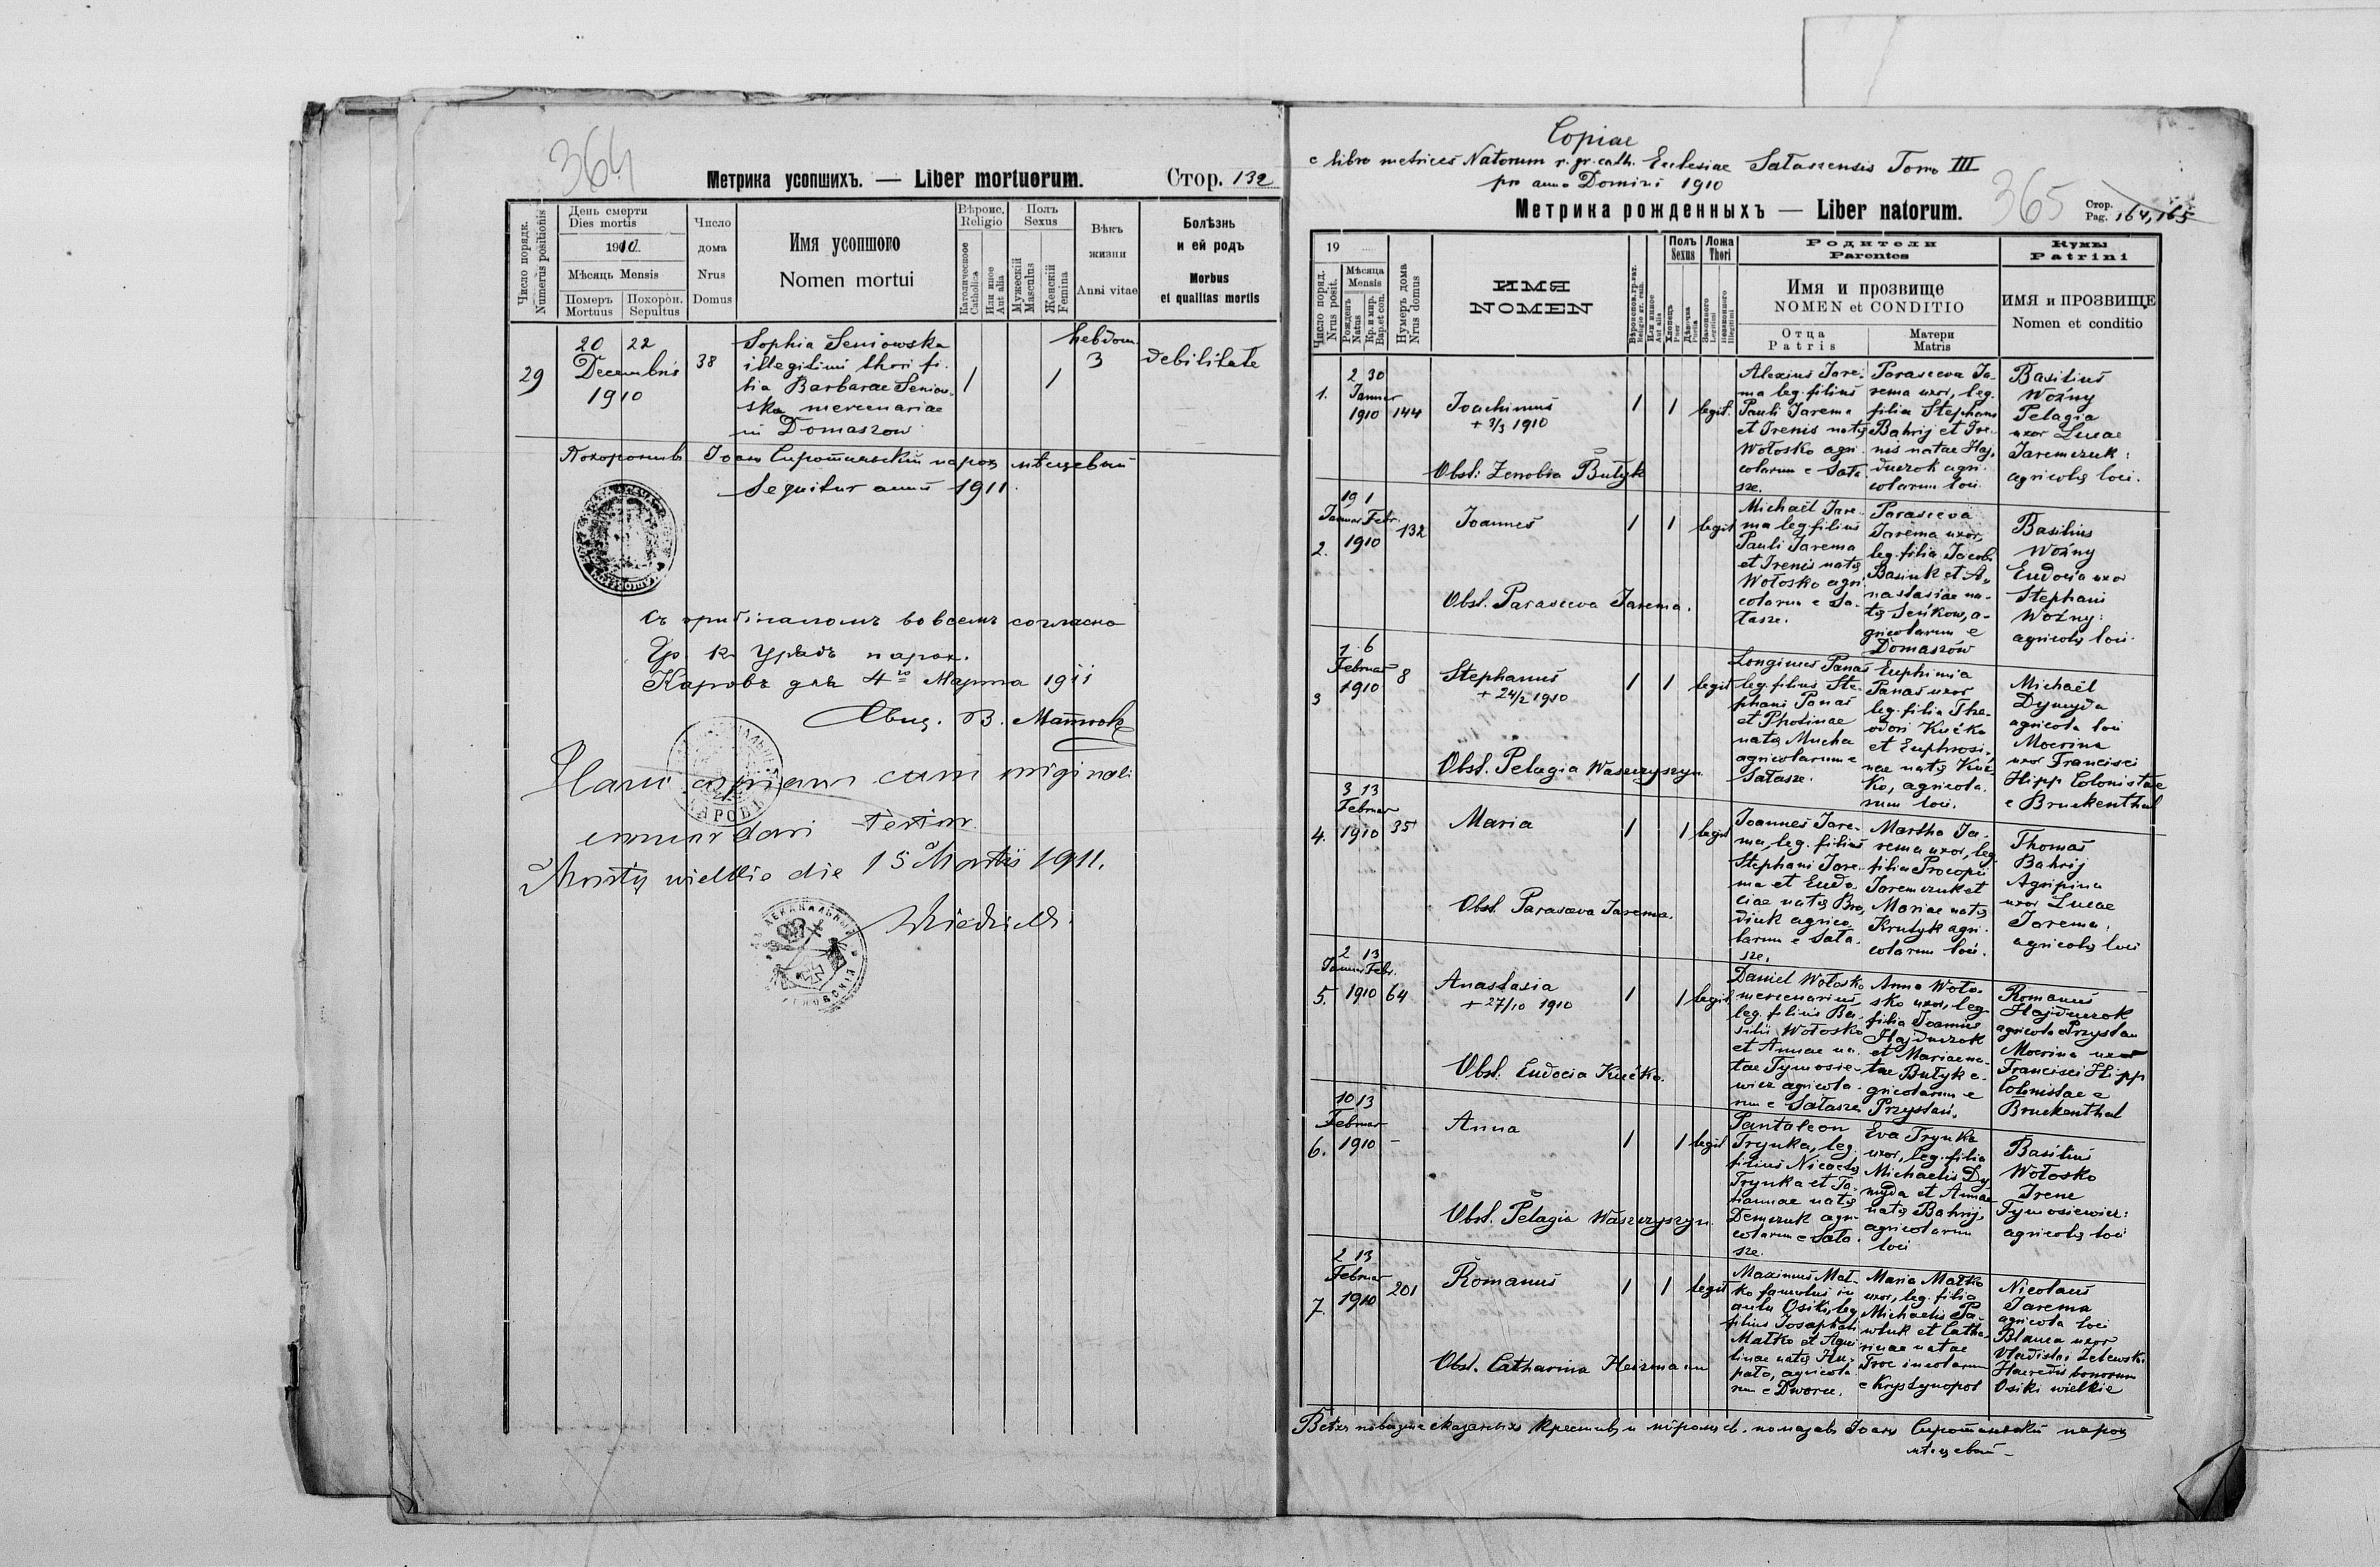 364
Метрика усопшихъ. — Liber mortuorum.
Стор. 132
Число порядк.
Numerus positionis
День смерти
Dies mortis
1910
Мѣсяць Mensis
Померъ
Mortuus
Похорон.
Sepultus
Число
дома
Nrus
Domus
Имя усопшого
Nomen mortui
Вѣроис.
Religio
Католическое
Catholica
Или иное
Aut alia
Полъ
Sexus
Мужескій
Masculus
Женскій
Femina
Вѣкъ
жизни
Anni vitae
Болѣзнь
и ей родъ
Morbus
et qualitas mortis
29
20 22
Decembris
1910
38
Sophia Seniowska
illegitimi thori fi-
lia Barbarae Seniow-
ska mercenariae
in Domaszow
1
1
hebdom.
3
debilitate
Похоронивъ Іоан Сиротинскій парох мѣсцевый
Sequitur annus 1911.
Съ оригіналомъ во всемъ согласно
Гр. к. Урядъ парох.
Каровъ дня 4го Марта 1911
Hanc copiam cum originali
concordari testor
Mosty wielkie die 15 Martii 1911.
Copiae
e libro metrices Natorum r. gr. cath. Eclesiae Sałaszensis Tomo III
pro anno Domini 1910
365
Метрика рожденныхъ — Liber natorum.
Стор.
Pag. 164, 165
19
Число поряд.
Nrus posit.
Мѣсяца
Mensis
Рожденъ
Natus
Кр. и мир.
Bap. et con.
Нумеръ дома
Nrus domus
ИМЯ
NOMEN
Или иное
Aut alia
Полъ
Sexus
Хлопець
Puer
Дѣвочка
Puella
Ложа
Thori
Законного
Legitimi
Незаконного
Illegitimi
Родители
Parentes
Имя и прозвище
NOMEN et CONDITIO
Отца
Patris
Матери
Matris
Кумы
Patrini
ИМЯ и ПРОЗВИЩЕ
Nomen et conditio
1.
2 30
Januar
1910
144
Joachimus
+ 3/3 1910
Obst: Zenobia Butyk
1
1
legit.
Alexius Jare-
ma leg. filius
Pauli Jarema
et Irenis natę
Wołosko agri-
colarum e Sała
sze.
Parasceva Ja-
rema uxor, leg.
filia Stephani
Bahrij et Ire-
nis natae Haj-
duczok agri-
colarum loci
Basilius
Woźny
Pelagia
uxor Lucae
Jaremczuk:
agricolę loci.
2.
19 1
Januar Febr.
1910
132
Joannes
Obst. Parasceva Jarema.
1
1
legit
Michaël Jare-
ma leg filius
Pauli Jarema
et Irenis natę
Wołosko agri-
colarum e Sa-
łasze.
Parasceva
Jarema uxor,
leg. filia Jacobi
Basiuk et A-
nastasiae na-
tę Seńkow, a-
gricolarum e
Domaszów
Basilius
Woźny
Eudocia uxor
Stephani
Woźny:
agricolę loci.
3
1 6
Februar
1910
8
Stephanus
+ 24/2 1910
Obst. Pelagia Waszczyszyn
1
1
legit
Longinus Panas
leg. filius Ste-
phani Panas
et Photinae
natę Mucha
agricolarum e
Sałasze.
Euphimia
Panas uxor
leg. filia The-
odori Kućko
et Euphrosi-
nae natę Kuć-
ko, agricola-
rum loci.
Michaël
Dymyda
agricola loci
Mocrina
uxor Francisci
Hipp Colonistae
e Bruckenthal
4.
3 13
Februar
1910
35
Maria
Obst. Parasceva Jarema.
1
1
legit
Joannes Jare-
ma, leg. filius
Stephani Jare-
ma et Eudo-
ciae natę Bro-
diuk agrico-
larum e Sała-
sze.
Martha Ja-
rema uxor, leg.
filia Procopii
Jaremczuk et
Mariae natę
Krutyk agri-
colarum loci.
Thomas
Bahrij
Agripina
uxor Lucae
Jarema,
agricolę loci
5.
2 13
Januar Febr.
1910
64
Anastasia
+ 27/10 1910
Obst. Eudocia Kućko.
1
1
legit
Daniel Wołosko
mercenarius,
leg. filius Ba-
silii Wołosko
et Annae na-
tae Tymosie-
wicz agricola-
rum e Sałasze
Anna Woło-
sko uxor, leg.
filia Joannis
Hajduczok
et Mariae na-
tae Butyk a-
gricolarum e
Przystań.
Romanus
Hajduczok
agricola e Przystań
Mocrina uxor
Francisci Hipp
Colonistae e
Bruckenthal
6.
10 13
Februar
1910
–
Anna
Obst. Pelagia Waszczyszyn.
1
1
legit
Pantaleon
Trynka, leg.
filius Nicolai
Trynka et Ta-
tiannae natę
Demczuk agri-
colarum e Sała-
sze.
Eva Trynka
uxor, leg. filia
Michaelis Dy-
myda et Annae
natę Bahrij,
agricolarum
loci
Basilius
Wołosko
Irene
Tymosiewicz:
agricolę loci
7.
2 13
Februar
1910
201
Romanus
Obst. Catharina Heizmann
1
1
legit
Maximus Mał-
ko famulus in
aula Osiki, leg.
filius Josaphati
Małko et Aqui-
linae natę Hu-
pało, agricola-
rum e Dworce.
Maria Małko
uxor, leg. filia
Michaelis Pa-
wluk et Catha-
rinae natae
Troc incolarum
e Krystynopol
Nicolaus
Jarema
agricola loci
Blanca uxor
Vladislai
Haeredis bonorum
Osiki wielkie
Всѣхъ повысше сказаныхъ крестивъ и мѵромъ св. помазавъ Іоанъ Сиротинскій парох
мѣсцевый